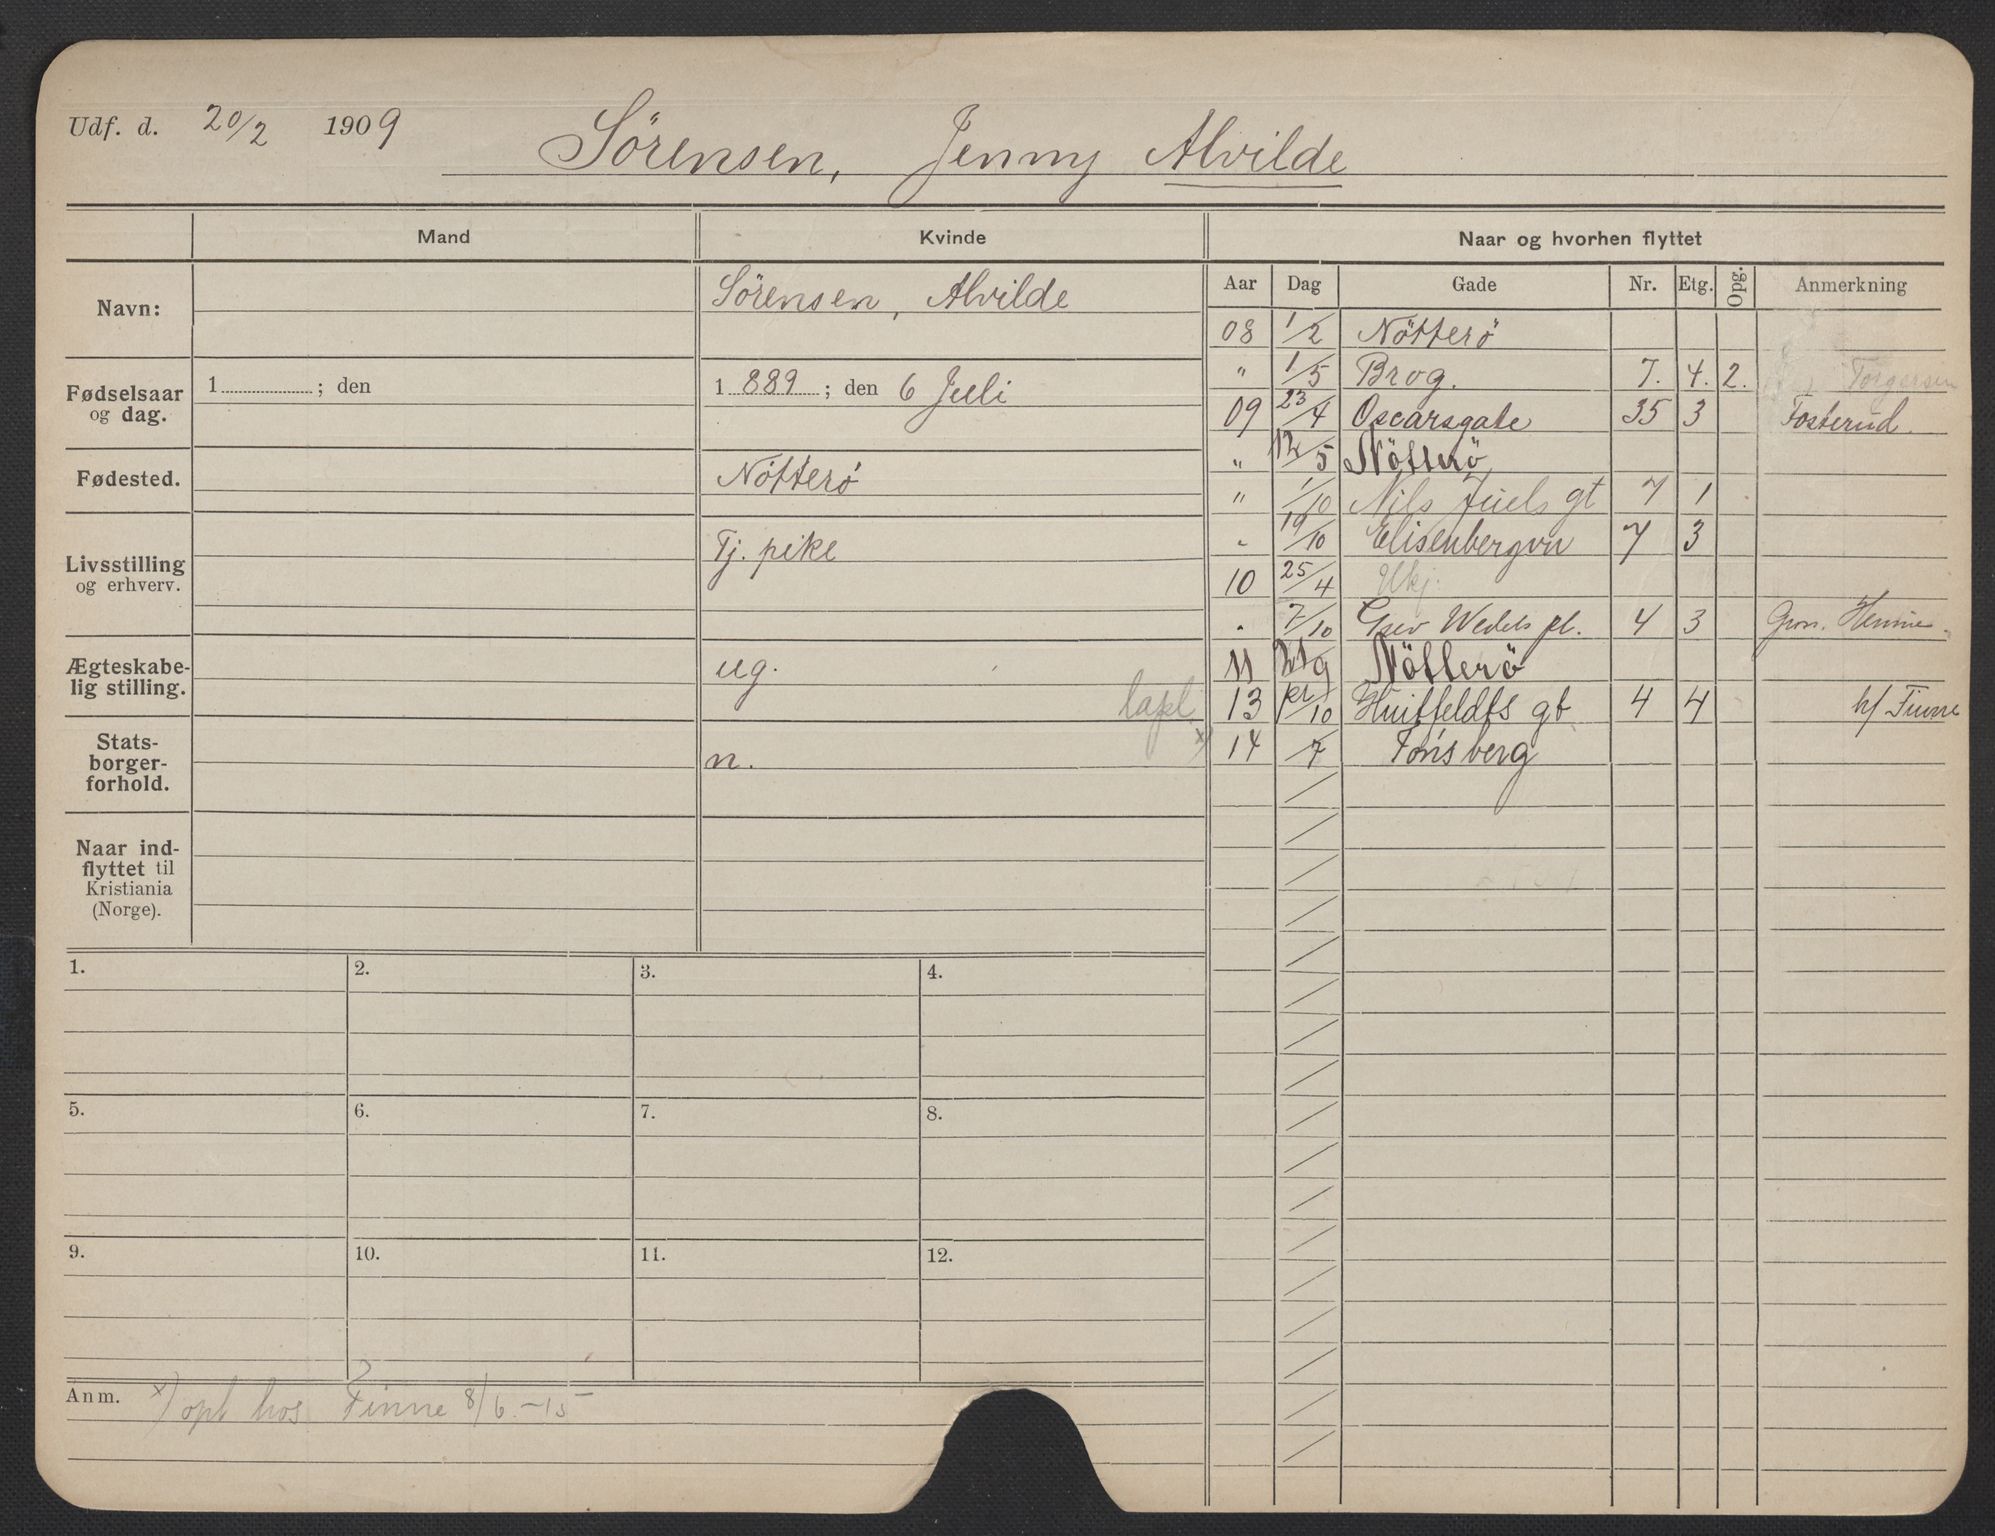 Udf. d. 20/2 1909 Sörensen, Jenny Alvilde
Mand Kvinde Naar og hvorhen flyttet
Navn: Sörensen, Alvilde
Fødselsaar og dag. 1 ; den 1 889 ; den 6 Juli
Fødested. Nötterö
Livsstilling og erhverv. Tj. pike
Ægteskabe-
lig stilling. ug.
lapl
Stats-
borger-
forhold. n.
Naar ind-
flyttet til
Kristiania
(Norge).
Aar Dag Gade Nr. Etg. Opg. Anmerkning
08 1/2 Nötterö
" 1/5 Brog. 7. 4. 2. Torgersen
09 23/4 Oscarsgate 35 3 Fosterud.
" 12/5 Nötterö
" 1/10 Nils Juels gt 7 1
" 19/10 Elisenbergvn 7 3
10 25/4 Ubkj.
" 7/10 Grev Wedels pl. 4 3
11 21/9 Nötterö
13 /10 Huitfeldts gt 4 4 h/ Finne
x) 14 /7 Tönsberg
1. 2. 3. 4.
5. 6. 7. 8.
9. 10. 11. 12.
Anm. x) opt hos Finne 8/6.-15